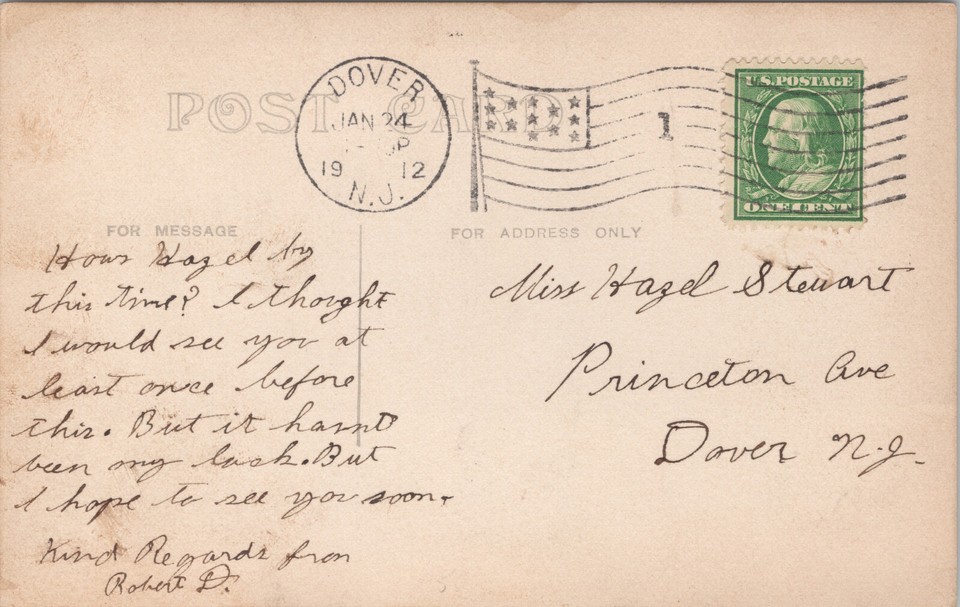 POST CARD
DOVER
JAN 24
P
19 12
N.J.
1
U.S. POSTAGE
ONE CENT
FOR MESSAGE
FOR ADDRESS ONLY
Hows Hazel by
this time? I thought
I would see you at
least once before
this. But it hasnt
been my luck. But
I hope to see you soon.
Kind Regards from
Robert D.
Miss Hazel Stewart
Princeton Ave
Dover N.J.